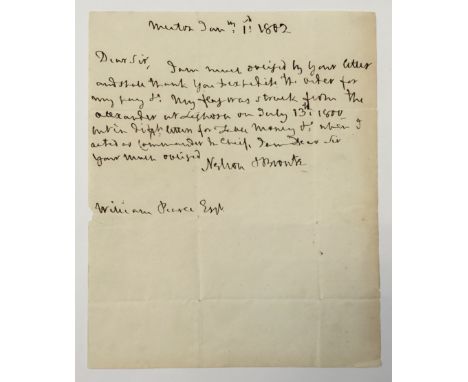 Merton Jan:ry: 1st: 1802
Dear Sir, I am much obliged by your letter
and shall thank you to expedite the order for
my pay &c. My flag was struck from the
Alexander at Leghorn on July 13th: 1800
but in letters for Table Money &c when I
acted as Commander in Chief, I am Dear Sir
Your much obliged
Nelson & Bronte
William Pearce Esqr.